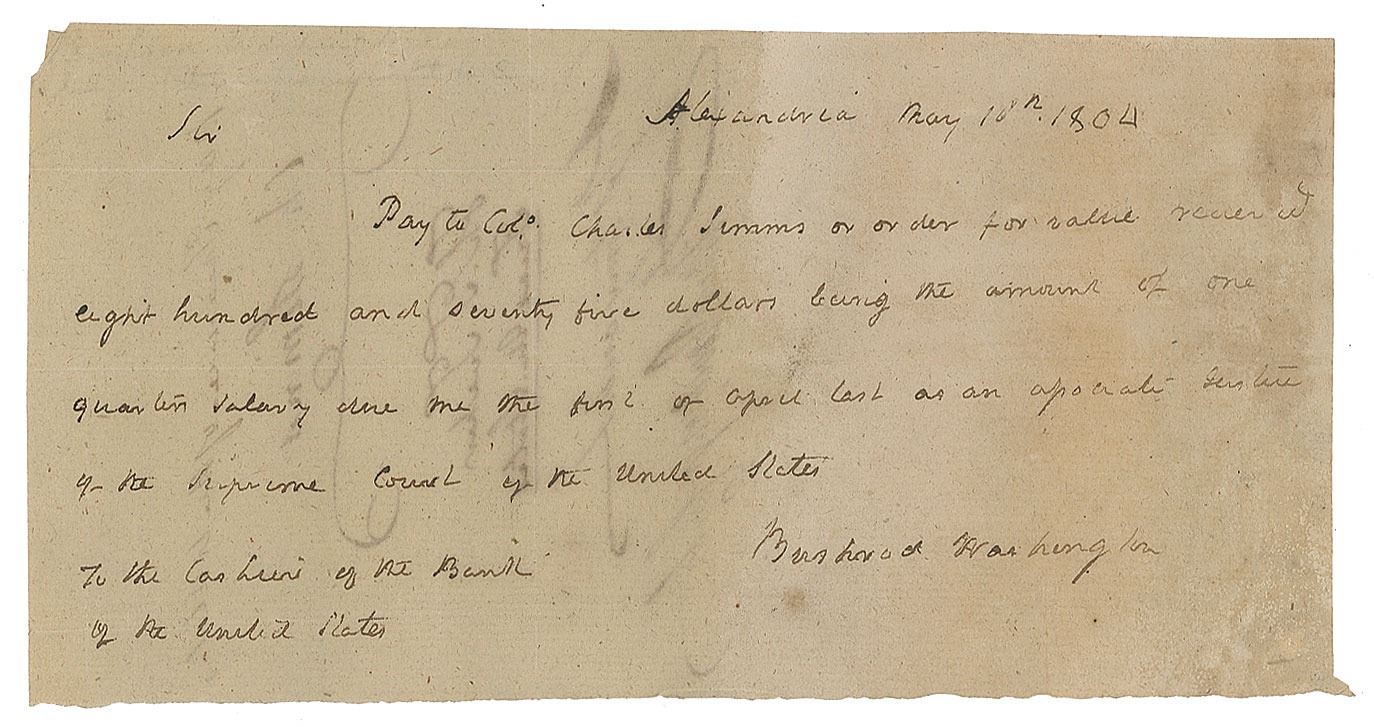 Alexandria May 10th. 1804
Sir
Pay to Colo. Charles Simms or order for value received
eight hundred and seventy five dollars being the amount of one
quarters salary due me the first of april last as an associate Justice
of the Supreme Court of the United States
Bushrod Washington
To the Cashier of the Bank
of the United States